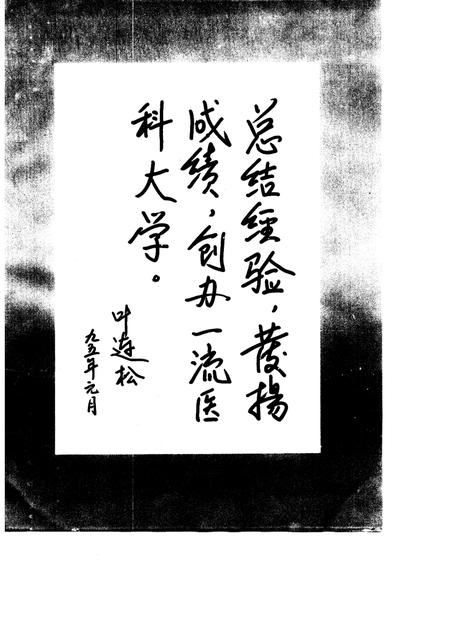 总结经验，發揚
成绩，创办一流医
科大学。
叶连松
九五年元月